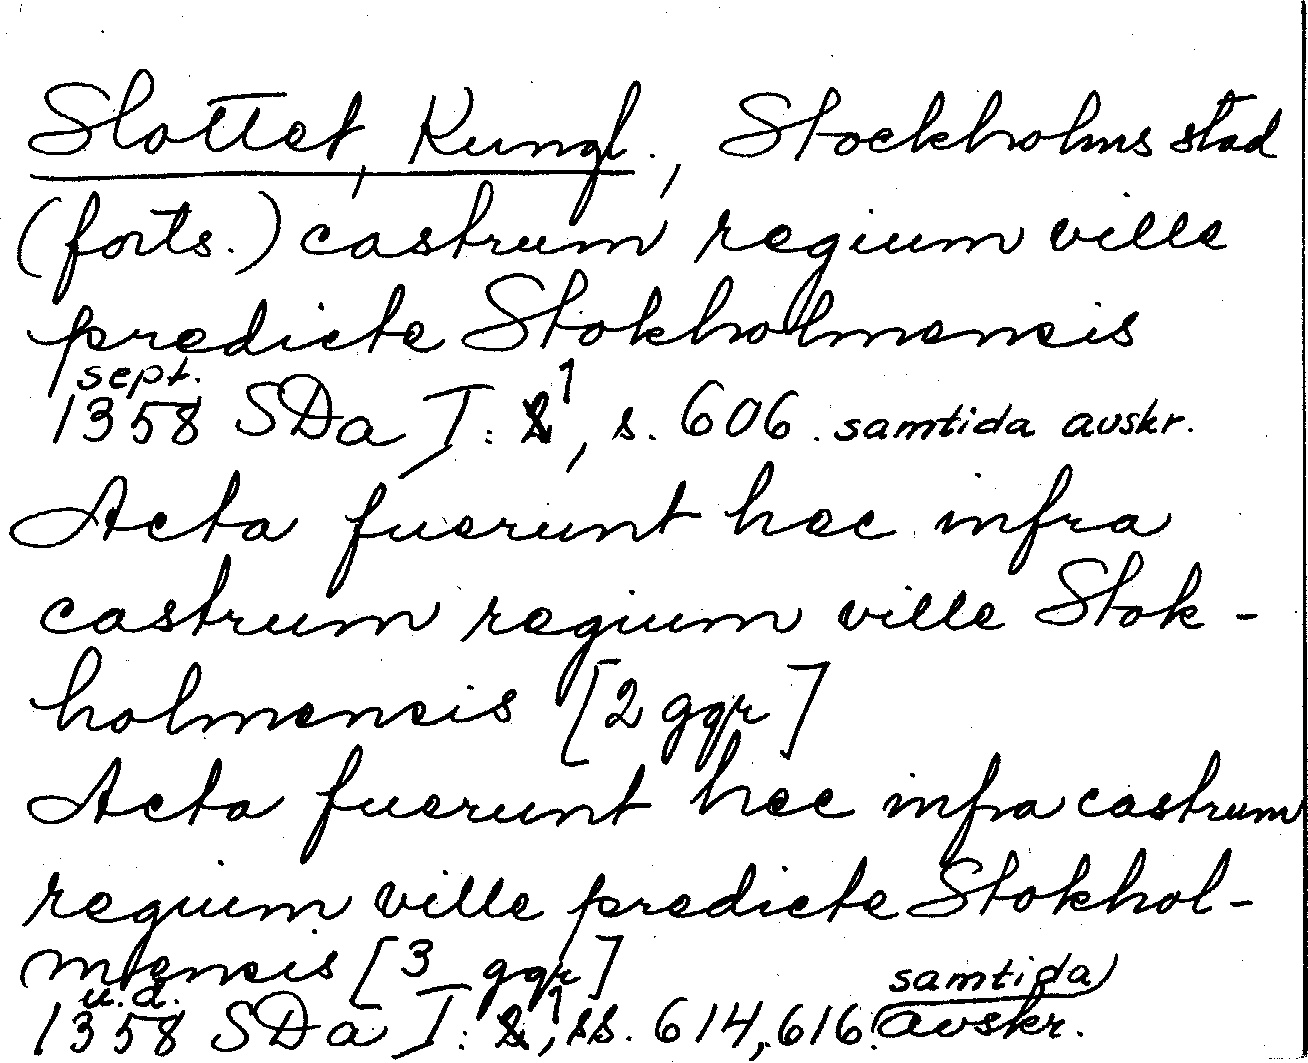 Slottet, Kungl., Stockholms stad
(forts.) castrum regium ville
predicte Stokholmensis
sept.
1358 SDa I:1, s. 606. samtida avskr.
Acta fuerunt hec infra
castrum regium ville Stok-
holmensis [2 ggr]
Acta fuerunt hec infra castrum
regium ville predicte Stokhol-
mensis [3 ggr]
u.d.
1358 SDa I:1, ss. 614, 616. samtida
avskr.